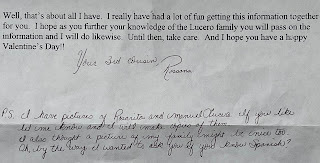 Well, that's about all I have. I really have had a lot of fun getting this information together
for you. I hope as you further your knowledge of the Lucero family you will pass on the
information and I will do likewise. Until then, take care. And I hope you have a happy
Valentine's Day!!
Your 3rd cousin,
Rosana
P.S. I have pictures of Rosarita and Emanuel Lucero if you like
let me know and I will make copies of them.
I also thought a picture of my family might be nice too.
Oh, by the way I wanted to ask you if you know Spanish?